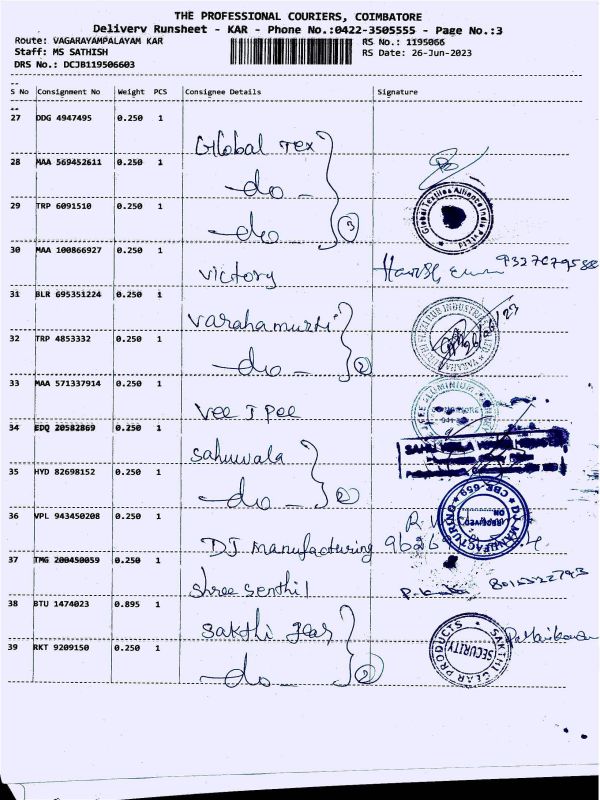 THE PROFESSIONAL COURIERS, COIMBATORE
Delivery Runsheet - KAR - Phone No.:0422-3505555 - Page No.:3
Route: VAGARAYAMPALAYAM KAR
RS No.: 1195066
Staff: MS SATHISH
RS Date: 26-Jun-2023
DRS No.: DCJB119506603
S No Consignment No Weight PCS Consignee Details Signature
27 DDG 4947495 0.250 1
Global Tex
28 MAA 569452611 0.250 1
-do-
29 TRP 6091510 0.250 1
-do- 3
Global Textiles Alliance India Pvt Ltd
30 MAA 100866927 0.250 1
Victory
31 BLR 695351224 0.250 1
Varahamurti
26/06/23
32 TRP 4853332 0.250 1
-do- 2
33 MAA 571337914 0.250 1
Vee J Pee
34 EDQ 20582869 0.250 1
Sahuwala
35 HYD 82698152 0.250 1
-do- 2
DJ MANUFACTURING CBE-659
36 VPL 943450208 0.250 1
DJ Manufacturing
37 TMG 200450059 0.250 1
Shree Senthil
8015322793
38 BTU 1474023 0.895 1
Sakthi Gear
39 RKT 9209150 0.250 1
-do- 2
SAKTHI GEAR PRODUCTS
SECURITY